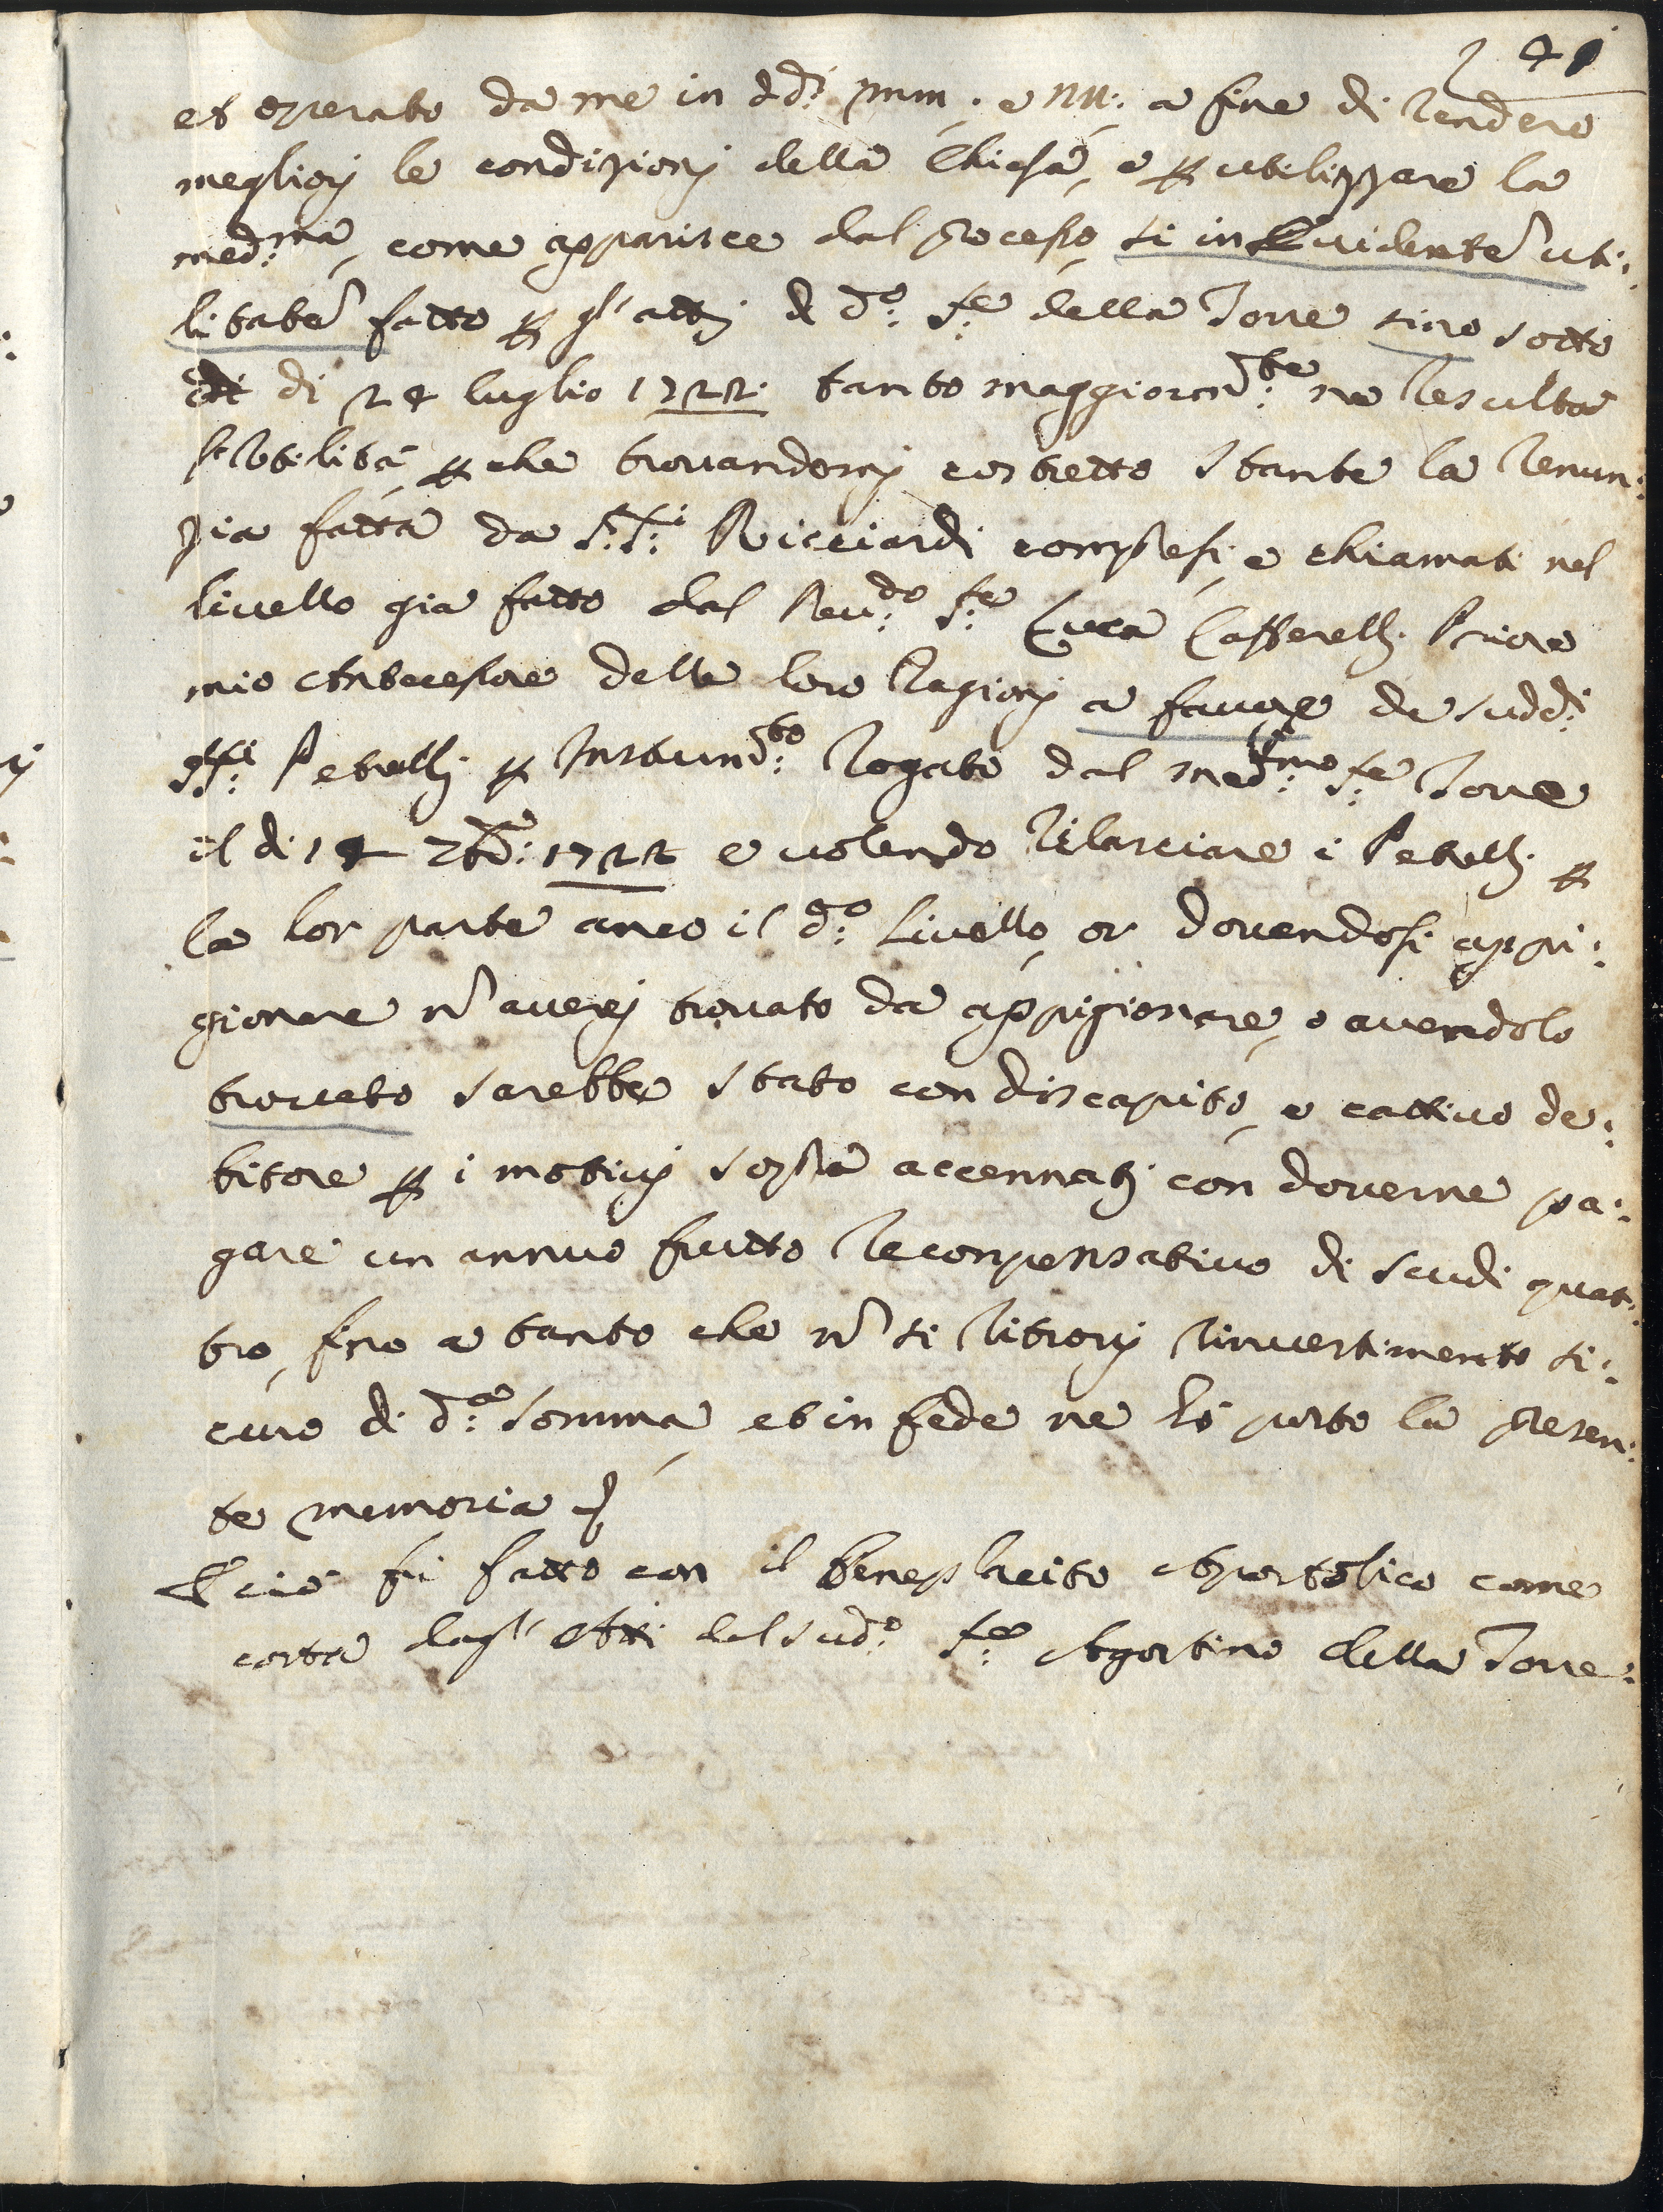 41
et operato da me in dd.i pnm. e nn: a fine di rendere
megliorj le condizionj della Chiesa, e p utilizzare la
med:ma, come apparisce dal processo si in Evidente uti:
litate fatto p gl'attj di d:o S:e della Torre sino sotto
di 24 luglio 1722. tanto maggiorm:te ne resulta
l'Utilità, p che trovandomj costretto stante la renun:
zia fatta da S:S:i Ricciardi compresi, e chiamati nel
livello gia fatto dal Reu:do S:e Luca Cafferellj Priore
mio Antecessore delle loro ragionj a favore de sudd:i
SS:i Petrellj p Instrum:to rogato dal med:mo S:e Torre
il di 14 7bre: 1722 e volendo rilasciare i Petrellj p
la lor parte anco il d:o Livello, or dovendosi appi:
gionare n averej trovato da appigionare, o avendolo
trovato sarebbe stato con discapito, e cattivo de:
bitore p i motivj sopra accennatj con doverne pa:
gare un annuo frutto reconpensativo di scudi quat:
tro, fino a tanto che n si ritrovj rinvestimento si:
curo di d:a somma, et in fede ne hò posto la presen:
te memoria
E ciò fù fatto con il beneplacito Apostolico come
costa dagl'Atti del sud:o S:e Agostino della Torre: